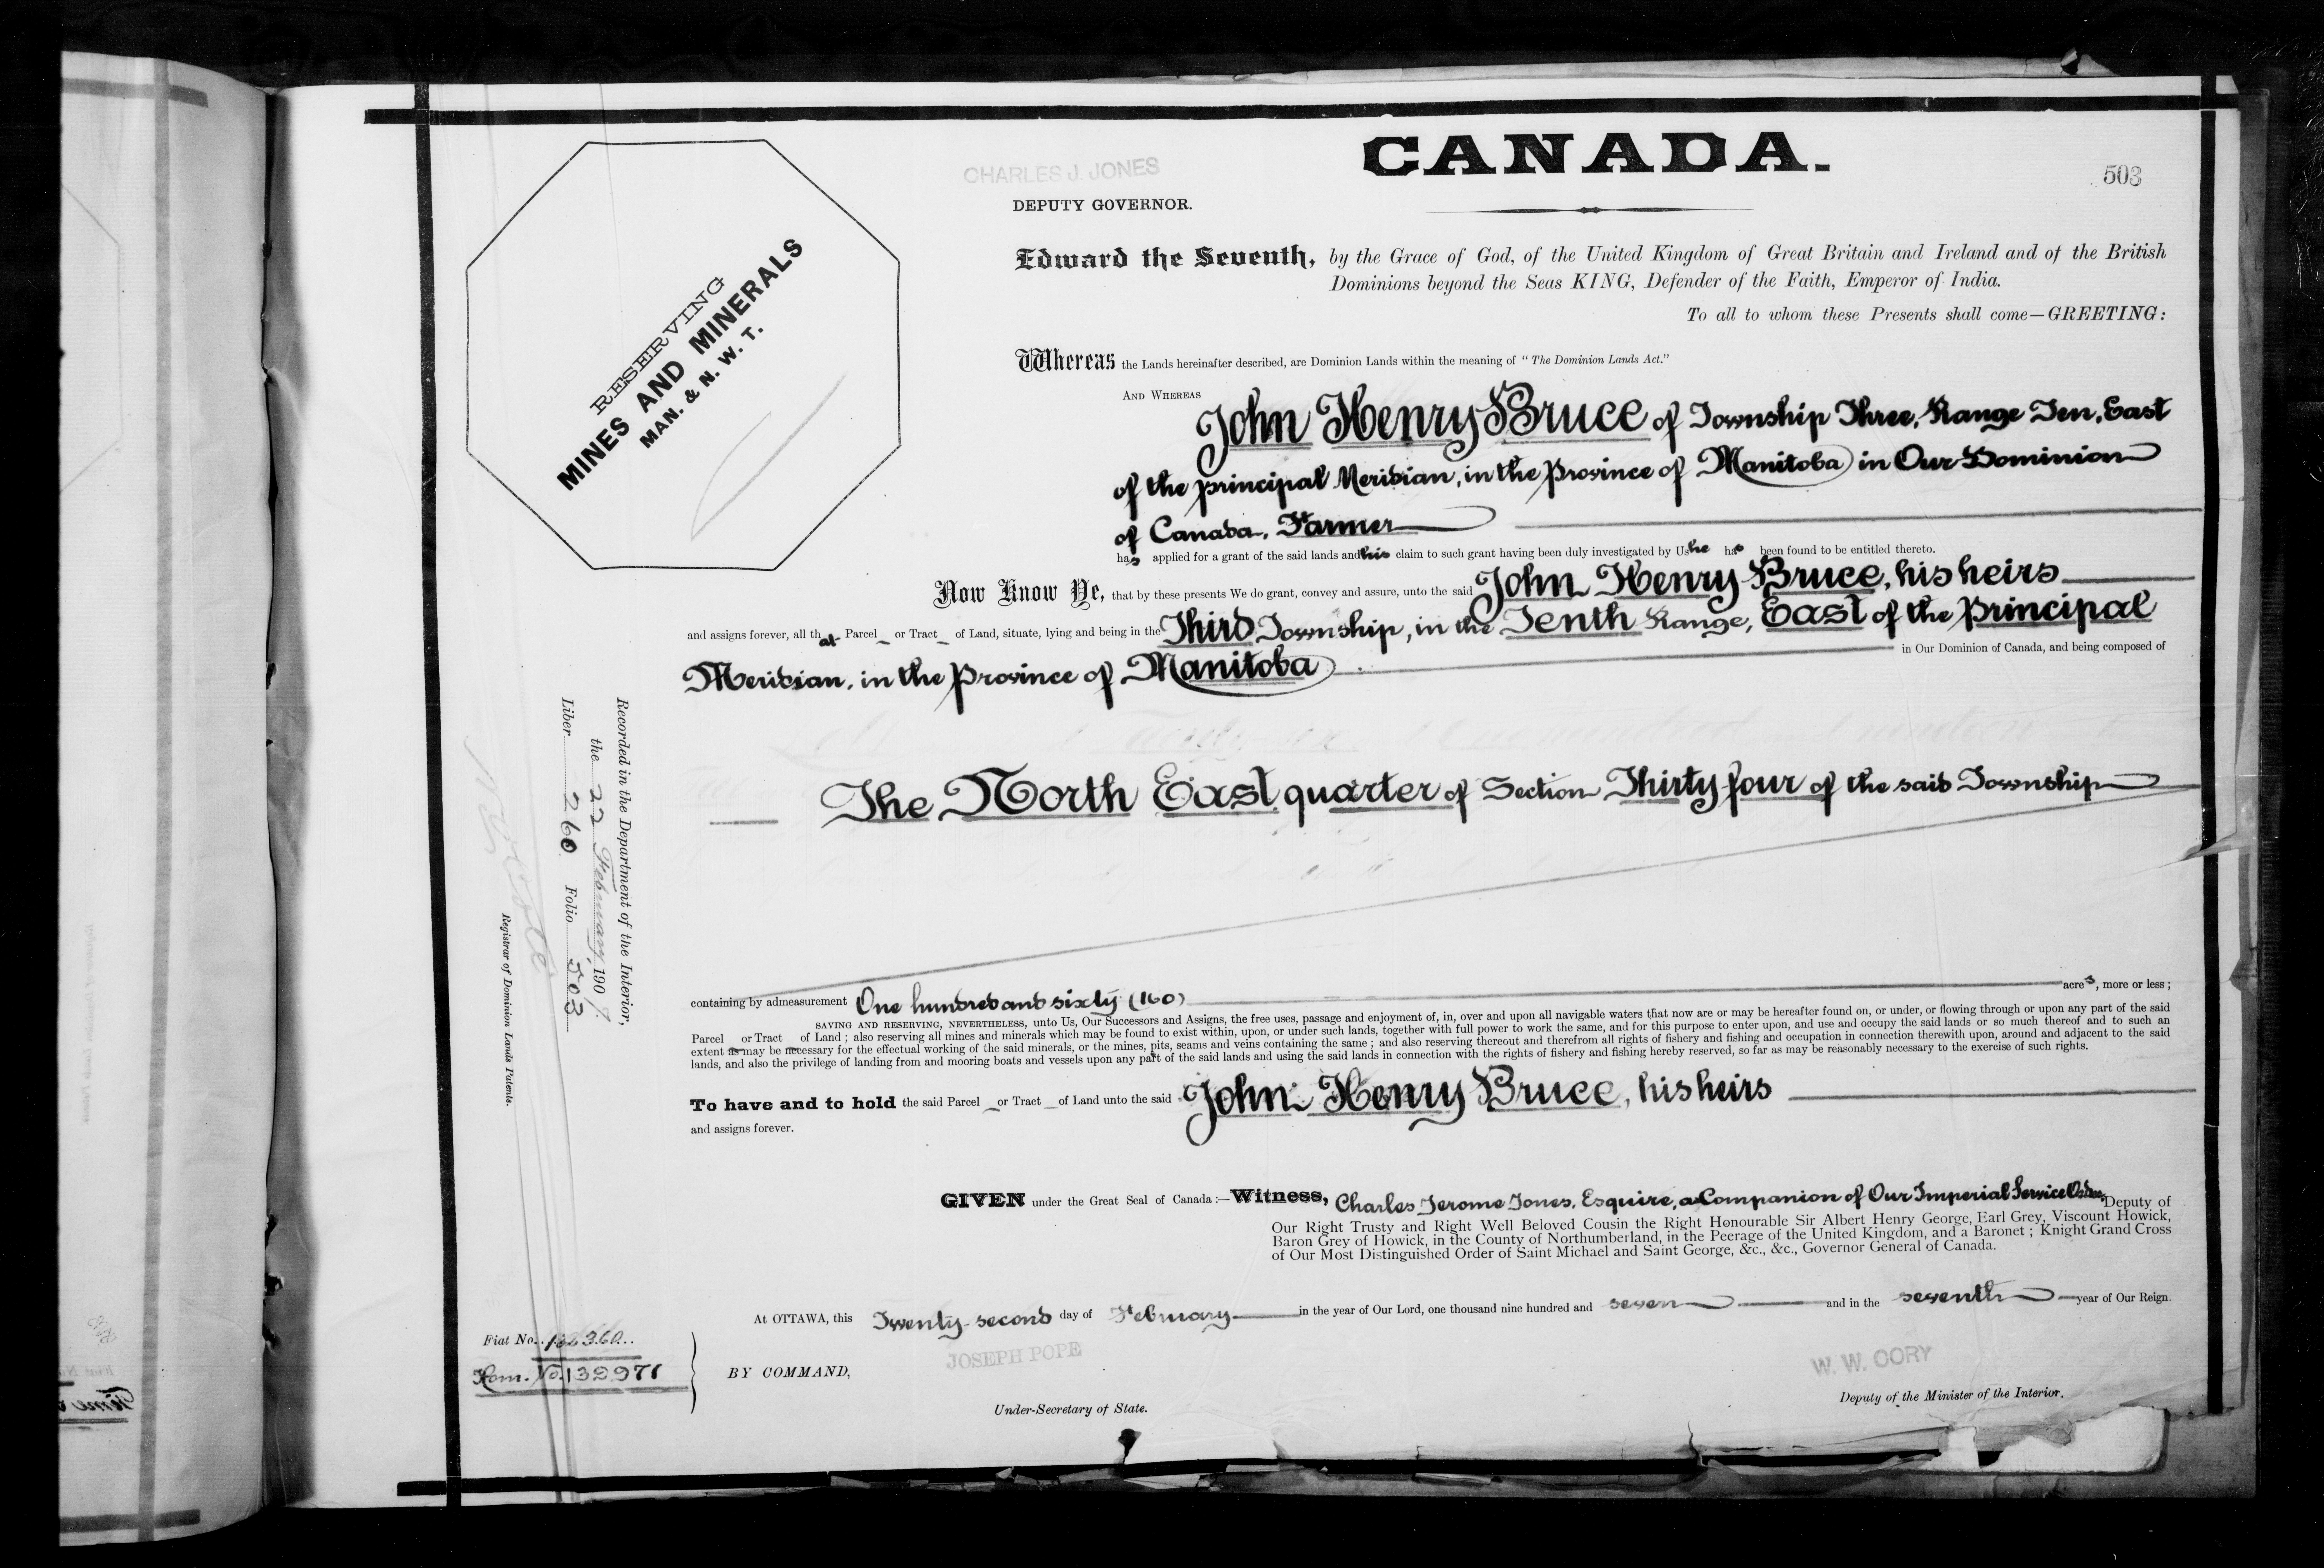 CANADA.
CHARLES J. JONES
503
DEPUTY GOVERNOR.
RESERVING
MINES AND MINERALS
MAN. & N. W. T.
Edward the Seventh, by the Grace of God, of the United Kingdom of Great Britain and Ireland and of the British
Dominions beyond the Seas KING, Defender of the Faith, Emperor of India.
To all to whom these Presents shall come—GREETING:
Whereas the Lands hereinafter described, are Dominion Lands within the meaning of "The Dominion Lands Act."
AND WHEREAS John Henry Bruce of Township Three, Range Ten, East
of the principal Meridian, in the Province of Manitoba in Our Dominion
of Canada, Farmer
has applied for a grant of the said lands and his claim to such grant having been duly investigated by Us he has been found to be entitled thereto.
Now Know Ye, that by these presents We do grant, convey and assure, unto the said John Henry Bruce, his heirs
and assigns forever, all that Parcel or Tract of Land, situate, lying and being in the Third Township, in the Tenth Range, East of the Principal
Meridian, in the Province of Manitoba in Our Dominion of Canada, and being composed of
The North East quarter of Section Thirty four of the said Township
containing by admeasurement One hundred and sixty (160) acres, more or less;
SAVING AND RESERVING, NEVERTHELESS, unto Us, Our Successors and Assigns, the free uses, passage and enjoyment of, in, over and upon all navigable waters that now are or may be hereafter found on, or under, or flowing through or upon any part of the said
Parcel or Tract of Land; also reserving all mines and minerals which may be found to exist within, upon, or under such lands, together with full power to work the same, and for this purpose to enter upon, and use and occupy the said lands or so much thereof and to such an
extent as may be necessary for the effectual working of the said minerals, or the mines, pits, seams and veins containing the same; and also reserving thereout and therefrom all rights of fishery and fishing and occupation in connection therewith upon, around and adjacent to the said
lands, and also the privilege of landing from and mooring boats and vessels upon any part of the said lands and using the said lands in connection with the rights of fishery and fishing hereby reserved, so far as may be reasonably necessary to the exercise of such rights.
To have and to hold the said Parcel or Tract of Land unto the said John Henry Bruce, his heirs
and assigns forever.
GIVEN under the Great Seal of Canada:—Witness, Charles Jerome Jones, Esquire, a Companion of Our Imperial Service Order, Deputy of
Our Right Trusty and Right Well Beloved Cousin the Right Honourable Sir Albert Henry George, Earl Grey, Viscount Howick,
Baron Grey of Howick, in the County of Northumberland, in the Peerage of the United Kingdom, and a Baronet; Knight Grand Cross
of Our Most Distinguished Order of Saint Michael and Saint George, &c., &c., Governor General of Canada.
At OTTAWA, this Twenty-second day of February in the year of Our Lord, one thousand nine hundred and seven and in the seventh year of Our Reign.
JOSEPH POPE
W. W. CORY
BY COMMAND,
Under-Secretary of State.
Deputy of the Minister of the Interior.
Recorded in the Department of the Interior,
the 22 February, 1907.
Liber 260 Folio 503
Registrar of Dominion Lands Patents.
Fiat No.
Hom. No. 132971